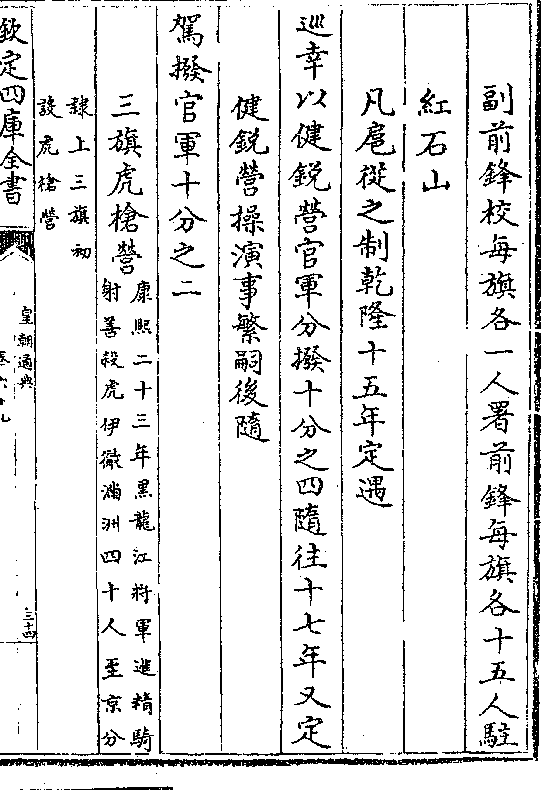 副前鋒校每旗各一人署前鋒每旗各十五人駐
紅石山
凡扈從之制乾隆十五年定遇
巡幸以健銳營官軍分撥十分之四隨往十七年又定
健銳營操演事繁嗣後隨
駕撥官軍十分之二
三旗虎槍營
康熙二十三年黑龍江將軍進精騎
射善殺虎伊徹滿洲四十人至京分
隸上三旗初
設虎槍營
欽定四庫全書
皇朝通典
卷六十九
三十四